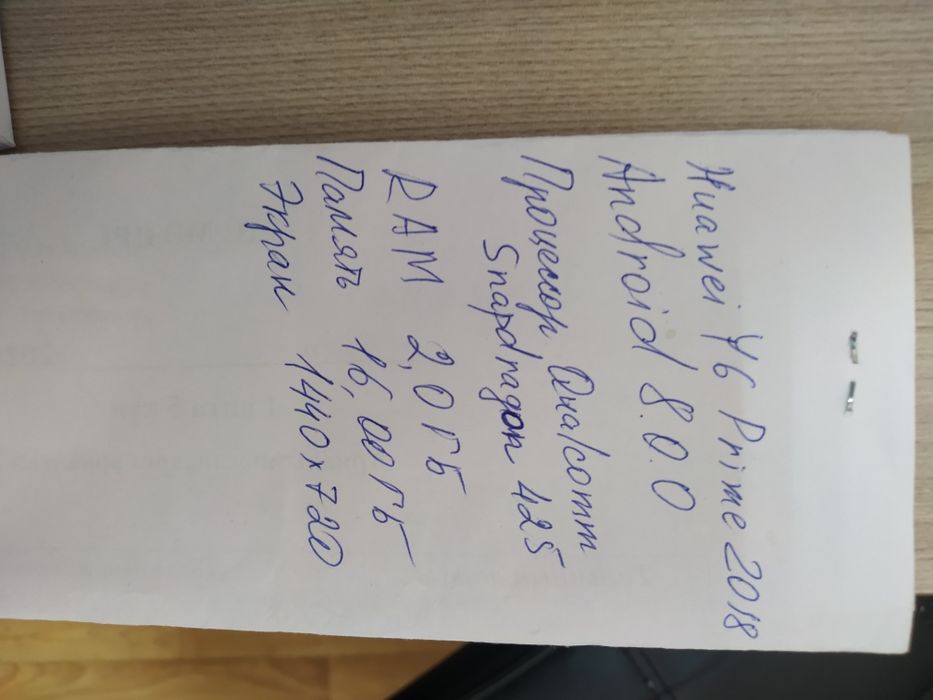 Huawei Y6 Prime 2018
Android 8.0.0
Процессор Qualcomm
Snapdragon 425
RAM 2,0 ГБ
Память 16,00 ГБ
Экран 1440x720